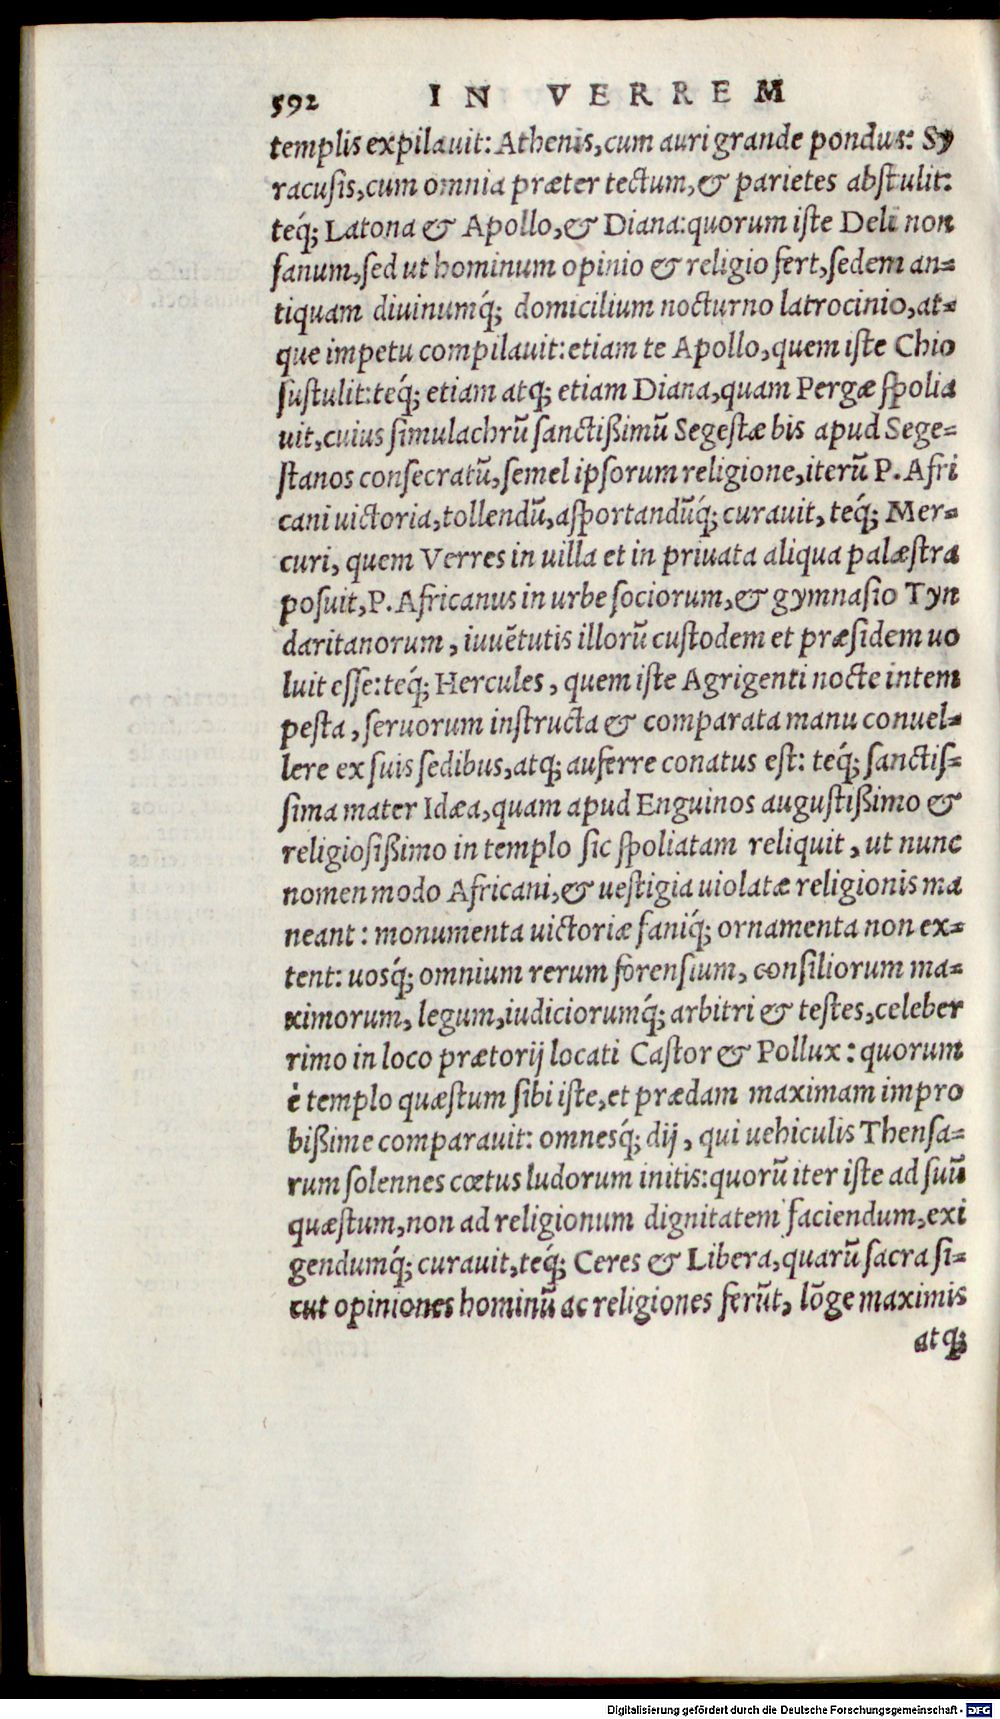 592 IN VERREM
templis expilauit: Athenis, cum auri grande pondus: Sy
racusis, cum omnia præter tectum, & parietes abstulit:
teq́; Latona & Apollo, & Diana: quorum iste Deli non
fanum, sed ut hominum opinio & religio fert, sedem an=
tiquam diuinumq́; domicilium nocturno latrocinio, at=
que impetu compilauit: etiam te Apollo, quem iste Chio
sustulit: teq́; etiam atq; etiam Diana, quam Pergæ spolia
uit, cuius simulachrū sanctißimū Segestæ bis apud Sege=
stanos consecratū, semel ipsorum religione, iterū P. Afri
cani uictoria, tollendū, asportandūq́; curauit, teq́; Mer=
curi, quem Verres in uilla et in priuata aliqua palæstra
posuit, P. Africanus in urbe sociorum, & gymnasio Tyn
daritanorum, iuuētutis illorū custodem et præsidem uo
luit esse: teq́; Hercules, quem iste Agrigenti nocte intem
pesta, seruorum instructa & comparata manu conuel=
lere ex suis sedibus, atq; auferre conatus est: teq́; sanctis=
sima mater Idæa, quam apud Enguinos augustißimo &
religiosißimo in templo sic spoliatam reliquit, ut nunc
nomen modo Africani, & uestigia uiolatæ religionis ma
neant: monumenta uictoriæ faniq́; ornamenta non ex=
tent: uosq́; omnium rerum forensium, consiliorum ma=
ximorum, legum, iudiciorumq́; arbitri & testes, celeber
rimo in loco prætorij locati Castor & Pollux: quorum
è templo quæstum sibi iste, et prædam maximam impro
bißime comparauit: omnesq́; dij, qui uehiculis Thensa=
rum solennes cœtus ludorum initis: quorū iter iste ad suū
quæstum, non ad religionum dignitatem faciendum, exi
gendumq́; curauit, teq́; Ceres & Libera, quarū sacra si=
cut opiniones hominū ac religiones ferūt, lōge maximis
atq;
Digitalisierung gefördert durch die Deutsche Forschungsgemeinschaft - DFG